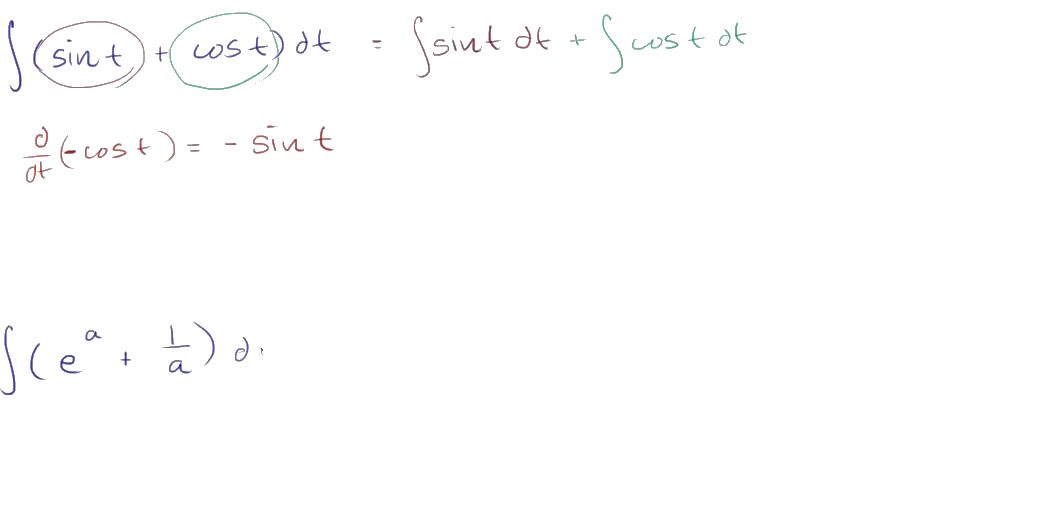 ∫(sin t + cos t) dt = ∫sin t dt + ∫cos t dt
d/dt (-cos t) = - sin t
∫(e^a + 1/a) d